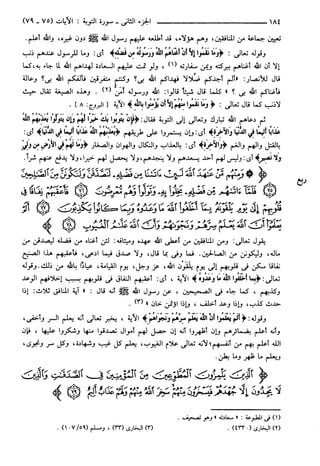 ١٨٤ ــــــــــــ الجزء الثانى ـ سورة التوبة : الآيات (٧٥ ـ ٧٩)
تعيين جماعة من المنافقين، وهم هؤلاء، قد أطلعه عليهم رسول الله ﷺ دون غيره، والله أعلم.
وقوله تعالى : ﴿ وَمَا نَقَمُوا إِلَّا أَنْ أَغْنَاهُمُ اللَّهُ وَرَسُولُهُ مِن فَضْلِهِ ﴾ أى: وما للرسول عندهم ذنب
إلا أن الله أغناهم ببركته ويمن سفارته (١) ، ولو تمت عليهم السعادة لهداهم الله لما جاء به، كما
قال للأنصار : « ألم أجدكم ضلالا فهداكم الله بى؟ وكنتم متفرقين فألفكم الله بى؟ وعالة
فأغناكم الله بى ؟ » كلما قال شيئا قالوا: الله ورسوله أمن (٢) . وهذه الصيغة تقال حيث
لا ذنب كما قال تعالى : ﴿ وَمَا نَقَمُوا مِنْهُمْ إِلَّا أَن يُؤْمِنُوا بِاللَّهِ ﴾ الآية [ البروج : ٨ ] .
ثم دعاهم الله تبارك وتعالى إلى التوبة فقال: ﴿ فَإِن يَتُوبُوا يَكُ خَيْرًا لَّهُمْ وَإِن يَتَوَلَّوْا يُعَذِّبْهُمُ اللَّهُ
عَذَابًا أَلِيمًا فِي الدُّنْيَا وَالْآخِرَةِ ﴾ أى: وإن يستمروا على طريقهم ﴿ يُعَذِّبْهُمُ اللَّهُ عَذَابًا أَلِيمًا فِي الدُّنْيَا ﴾ أى:
بالقتل والهم والغم ﴿ وَالْآخِرَةِ ﴾ أى: بالعذاب والنكال والهوان والصغار ﴿ وَمَا لَهُمْ فِي الْأَرْضِ مِن وَلِيٍّ
وَلَا نَصِيرٍ ﴾ أى: وليس لهم أحد يسعدهم ولا ينجدهم، ولا يحصل لهم خيرا، ولا يدفع عنهم شراً.
ربع
﴿ وَمِنْهُم مَّنْ عَاهَدَ اللَّهَ لَئِنْ آتَانَا مِن فَضْلِهِ لَنَصَّدَّقَنَّ وَلَنَكُونَنَّ مِنَ الصَّالِحِينَ
﴿٧٥﴾ فَلَمَّا آتَاهُم مِّن فَضْلِهِ بَخِلُوا بِهِ وَتَوَلَّوا وَّهُم مُّعْرِضُونَ ﴿٧٦﴾ فَأَعْقَبَهُمْ نِفَاقًا فِي
قُلُوبِهِمْ إِلَىٰ يَوْمِ يَلْقَوْنَهُ بِمَا أَخْلَفُوا اللَّهَ مَا وَعَدُوهُ وَبِمَا كَانُوا يَكْذِبُونَ
﴿٧٧﴾ أَلَمْ يَعْلَمُوا أَنَّ اللَّهَ يَعْلَمُ سِرَّهُمْ وَنَجْوَاهُمْ وَأَنَّ اللَّهَ عَلَّامُ الْغُيُوبِ ﴿٧٨﴾ ﴾
يقول تعالى: ومن المنافقين من أعطى الله عهده وميثاقه: لئن أغناه من فضله ليصدقن من
ماله، وليكونن من الصالحين. فما وفى بما قال، ولا صدق فيما ادعى، فأعقبهم هذا الصنيع
نفاقا سكن فى قلوبهم إلى يوم يلقون الله، عز وجل، يوم القيامة، عياذا بالله من ذلك. وقوله
تعالى: ﴿ بِمَا أَخْلَفُوا اللَّهَ مَا وَعَدُوهُ ﴾ الآية ، أى: أعقبهم النفاق فى قلوبهم بسبب إخلافهم الوعد
وكذبهم ، كما جاء فى الصحيحين ، عن رسول الله ﷺ أنه قال : « آية المنافق ثلاث: إذا
حدث كذب، وإذا وعد أخلف ، وإذا اؤتمن خان » (٣) .
وقوله: ﴿ أَلَمْ يَعْلَمُوا أَنَّ اللَّهَ يَعْلَمُ سِرَّهُمْ وَنَجْوَاهُمْ ﴾ الآية ، يخبر تعالى أنه يعلم السر وأخفى،
وأنه أعلم بضمائرهم وإن أظهروا أنه إن حصل لهم أموال تصدقوا منها وشكروا عليها ، فإن
الله أعلم بهم من أنفسهم؛ لأنه تعالى علام الغيوب، يعلم كل غيب وشهادة، وكل سر ونجوى،
ويعلم ما ظهر وما بطن.
﴿ الَّذِينَ يَلْمِزُونَ الْمُطَّوِّعِينَ مِنَ الْمُؤْمِنِينَ فِي الصَّدَقَاتِ وَالَّذِينَ
لَا يَجِدُونَ إِلَّا جُهْدَهُمْ فَيَسْخَرُونَ مِنْهُمْ سَخِرَ اللَّهُ مِنْهُمْ وَلَهُمْ عَذَابٌ أَلِيمٌ ﴿٧٩﴾ ﴾
(١) فى المطبوعة : « سعادته » وهو تصحيف .
(٢) البخارى (٤٣٣٠) . (٣) البخارى (٣٣) ، ومسلم (٥٩ /١٠٧) .